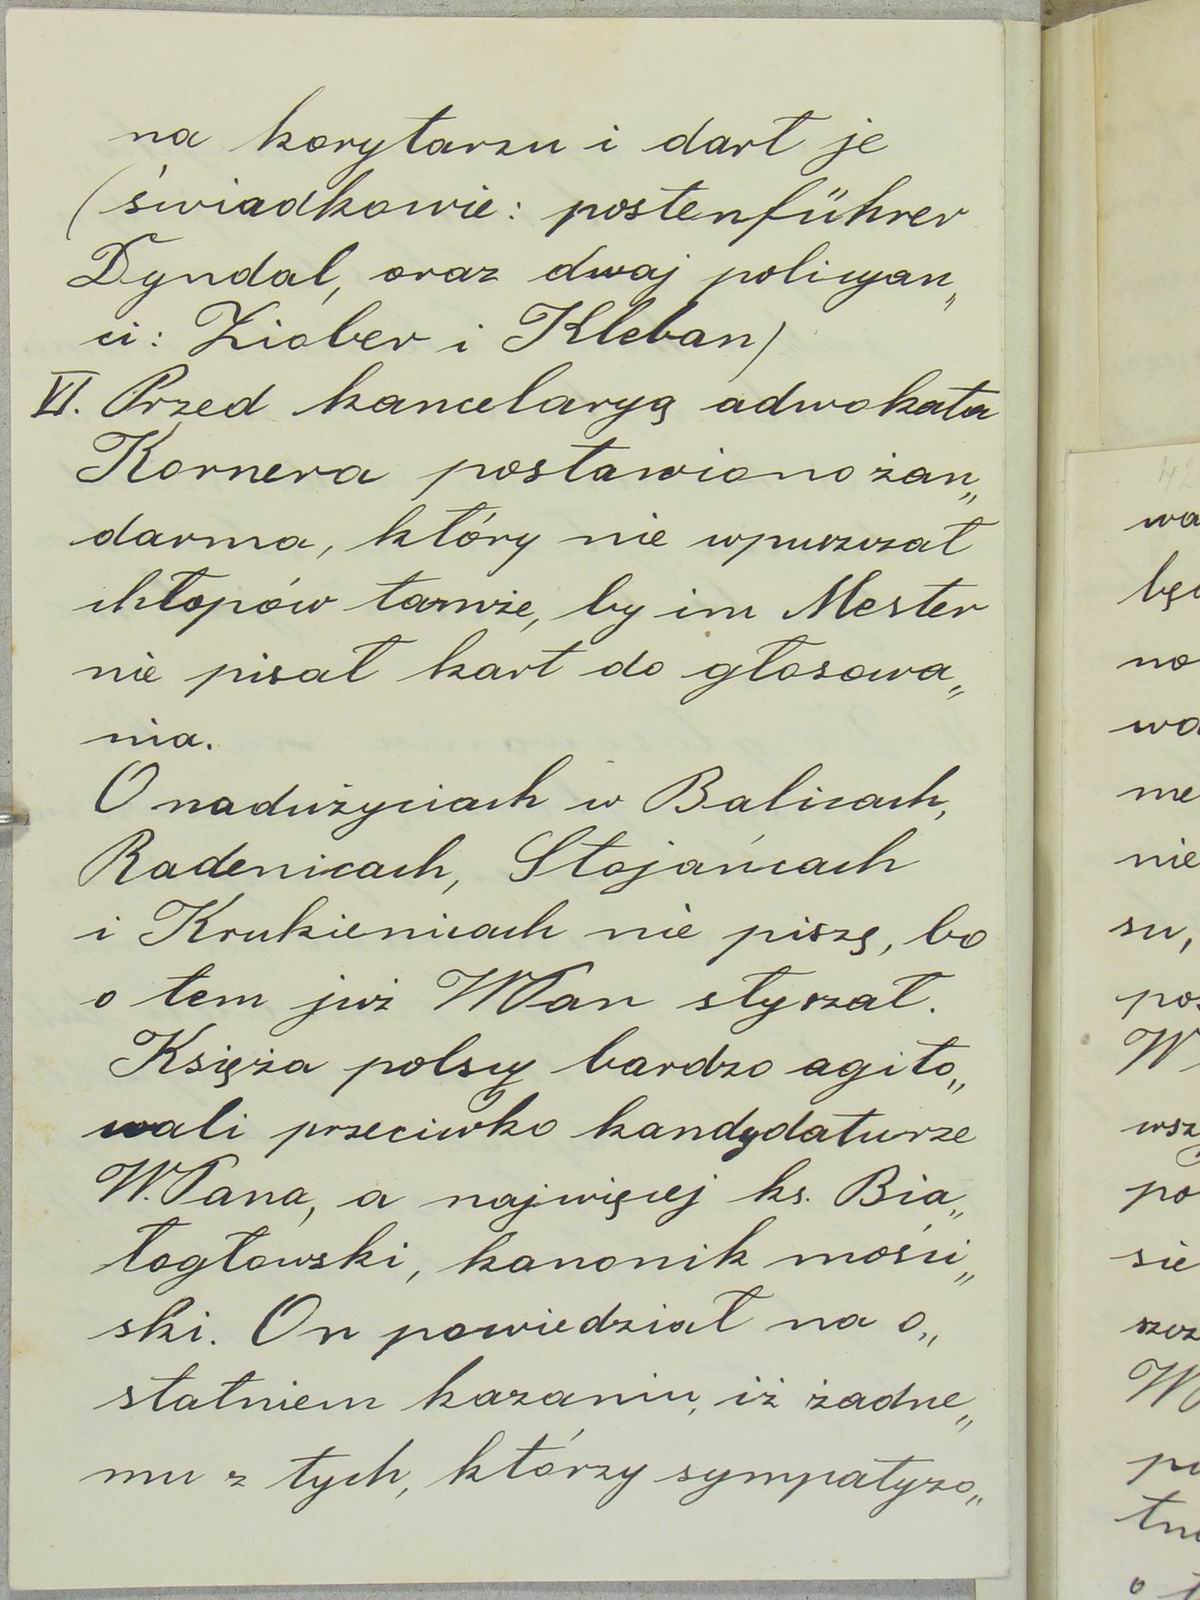 na korytarzu i dart je
(świadkowie: postenführer
Dyndał, oraz dwaj policyan„
ci: Ziober i Kleban)
VI. Przed kancelaryą adwokata
Kornera postawiono żan„
darma, który nie wpuszczał
chłopów tamże, by im Mester
nie pisał kart do głosowa„
nia.
O nadużyciach w Balicach,
Radenicach, Stojańcach
i Krukienicach nie piszę, bo
o tem już WPan słyszał.
Księża polscy bardzo agito„
wali przeciwko kandydaturze
W.Pana, a najwięcej ks. Bia„
łogłowski, kanonik mości„
ski. On powiedział na o„
statniem kazaniu, iż żadne„
mu z tych, którzy sympatyzo„
42
wa
bę
no
wa
me
nie
su,
pos
W
wsz
po
sie
szcz
W
po
tn
o t